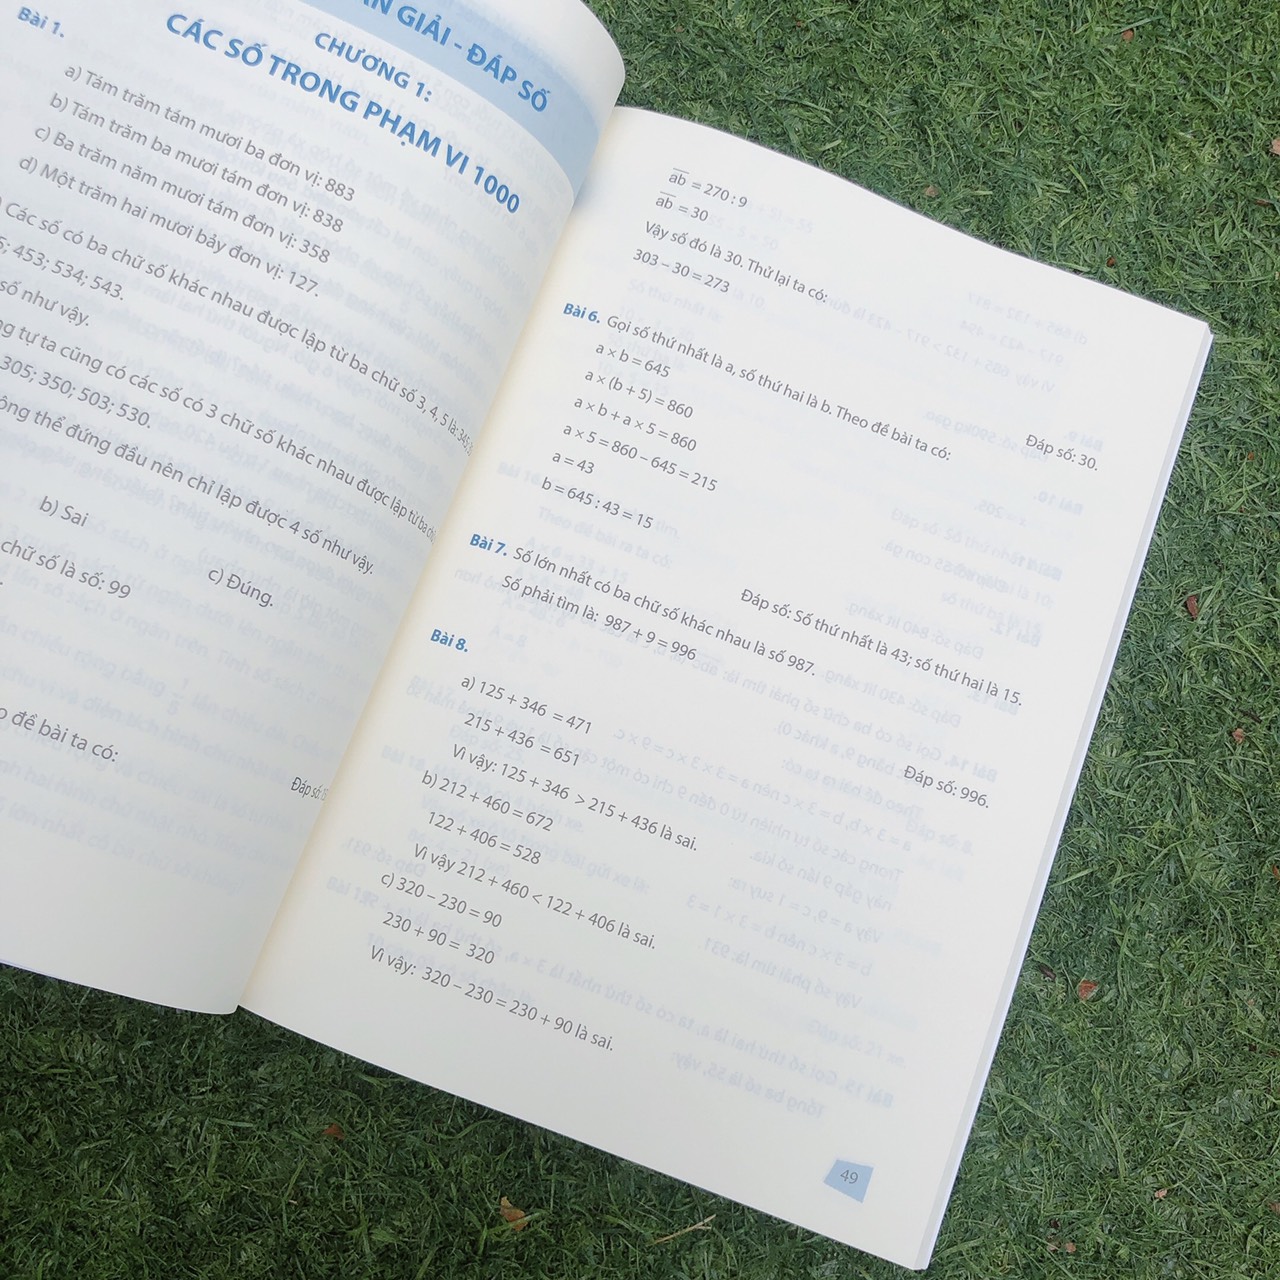 GIẢI - ĐÁP SỐ
CHƯƠNG 1:
CÁC SỐ TRONG PHẠM VI 1000
Bài 1.
a) Tám trăm tám mươi ba đơn vị: 883
b) Tám trăm ba mươi tám đơn vị: 838
c) Ba trăm năm mươi tám đơn vị: 358
d) Một trăm hai mươi bảy đơn vị: 127.
Các số có ba chữ số khác nhau được lập từ ba chữ số 3, 4, 5 là: 345;
453; 534; 543.
số như vậy.
tự ta cũng có các số có 3 chữ số khác nhau được lập từ ba
305; 350; 503; 530.
thể đứng đầu nên chỉ lập được 4 số như vậy.
b) Sai
c) Đúng.
chữ số là số: 99
đề bài ta có:
Đáp số:
ab = 270 : 9
ab = 30
Vậy số đó là 30. Thử lại ta có:
303 – 30 = 273
Đáp số: 30.
Bài 6. Gọi số thứ nhất là a, số thứ hai là b. Theo đề bài ta có:
a × b = 645
a × (b + 5) = 860
a × b + a × 5 = 860
a × 5 = 860 – 645 = 215
a = 43
b = 645 : 43 = 15
Đáp số: Số thứ nhất là 43; số thứ hai là 15.
Bài 7. Số lớn nhất có ba chữ số khác nhau là số 987.
Số phải tìm là: 987 + 9 = 996
Đáp số: 996.
Bài 8.
a) 125 + 346 = 471
215 + 436 = 651
Vì vậy: 125 + 346 > 215 + 436 là sai.
b) 212 + 460 = 672
122 + 406 = 528
Vì vậy 212 + 460 < 122 + 406 là sai.
c) 320 – 230 = 90
230 + 90 = 320
Vì vậy: 320 – 230 = 230 + 90 là sai.
49